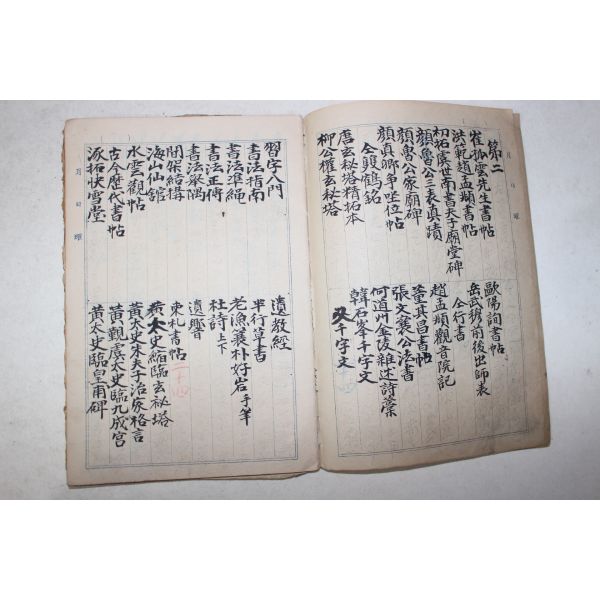 月 日 曜
第二
崔孤雲先生書帖
洪範趙孟頫書帖
初拓虞世南書夫子廟堂碑
顔魯公三表真蹟
顔魯公家廟碑
顔真卿爭坐位帖
仝瘞鶴銘
唐玄秘塔精拓本
柳公權玄秘塔
歐陽詢書帖
岳武穆前後出師表
仝行書
趙孟頫觀音院記
董其昌書帖
張文襄公法書
何道州金陵雜述詩藁
韓石峯千字文
千字文
習字入門
書法指南
書法準繩
書法正傳
書法舉隅
間架結構
海山仙舘
水雲觀帖
古今歷代書帖
涿拓快雪堂
月 日 曜
遺教經
半行草書
老漁蓑朴好岩手筆
杜詩上下
遺響
柬札書帖
黄太史縮臨玄祕塔
黄太史朱夫子治家格言
黄觀虞太史臨九成宮
黄太史臨皇甫碑